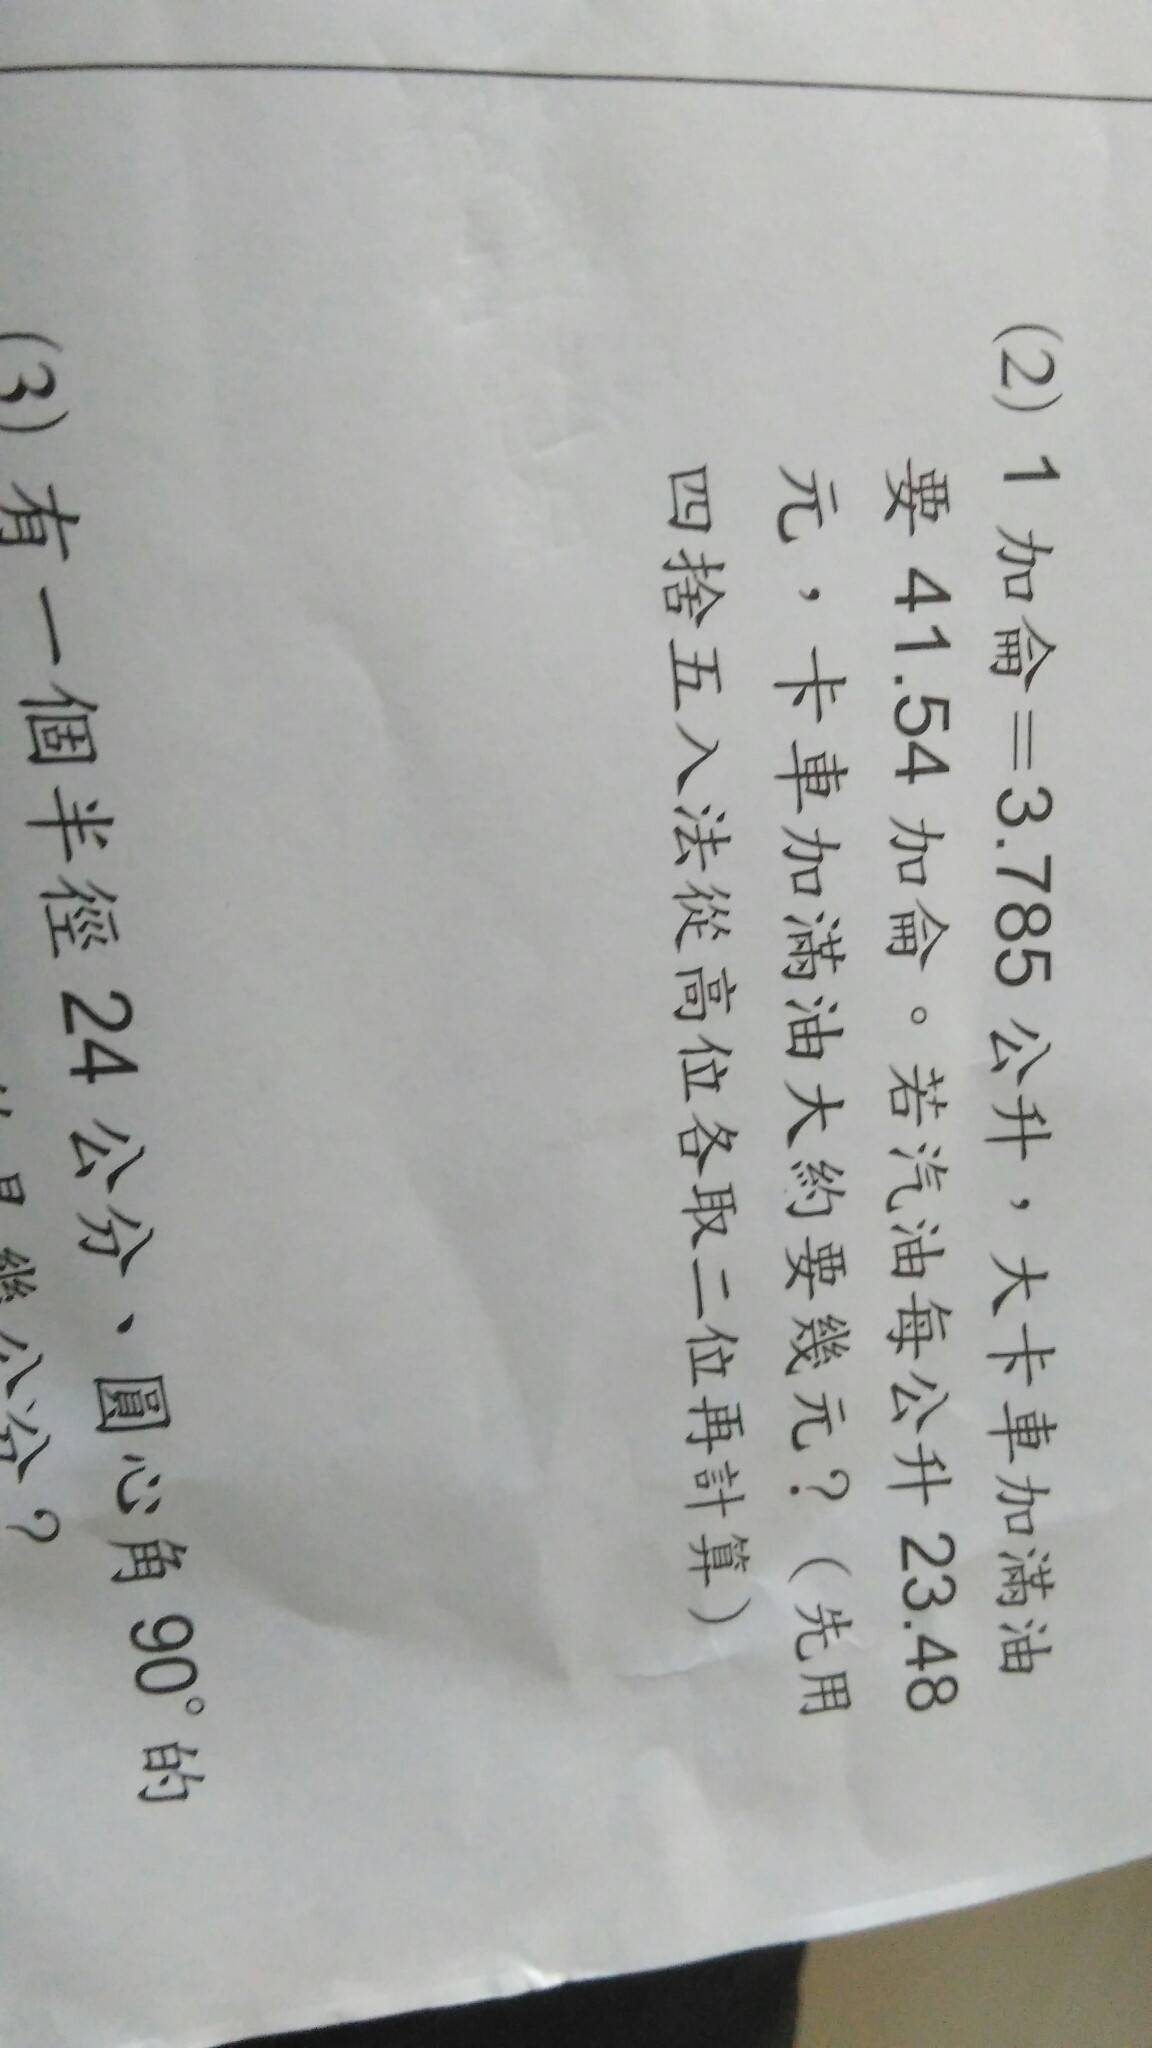 (2) 1 加侖=3.785 公升，大卡車加滿油
要 41.54 加侖。若汽油每公升 23.48
元，卡車加滿油大約要幾元？（先用
四捨五入法從高位各取二位再計算）
(3) 有一個半徑 24 公分、圓心角 90° 的
幾公分？